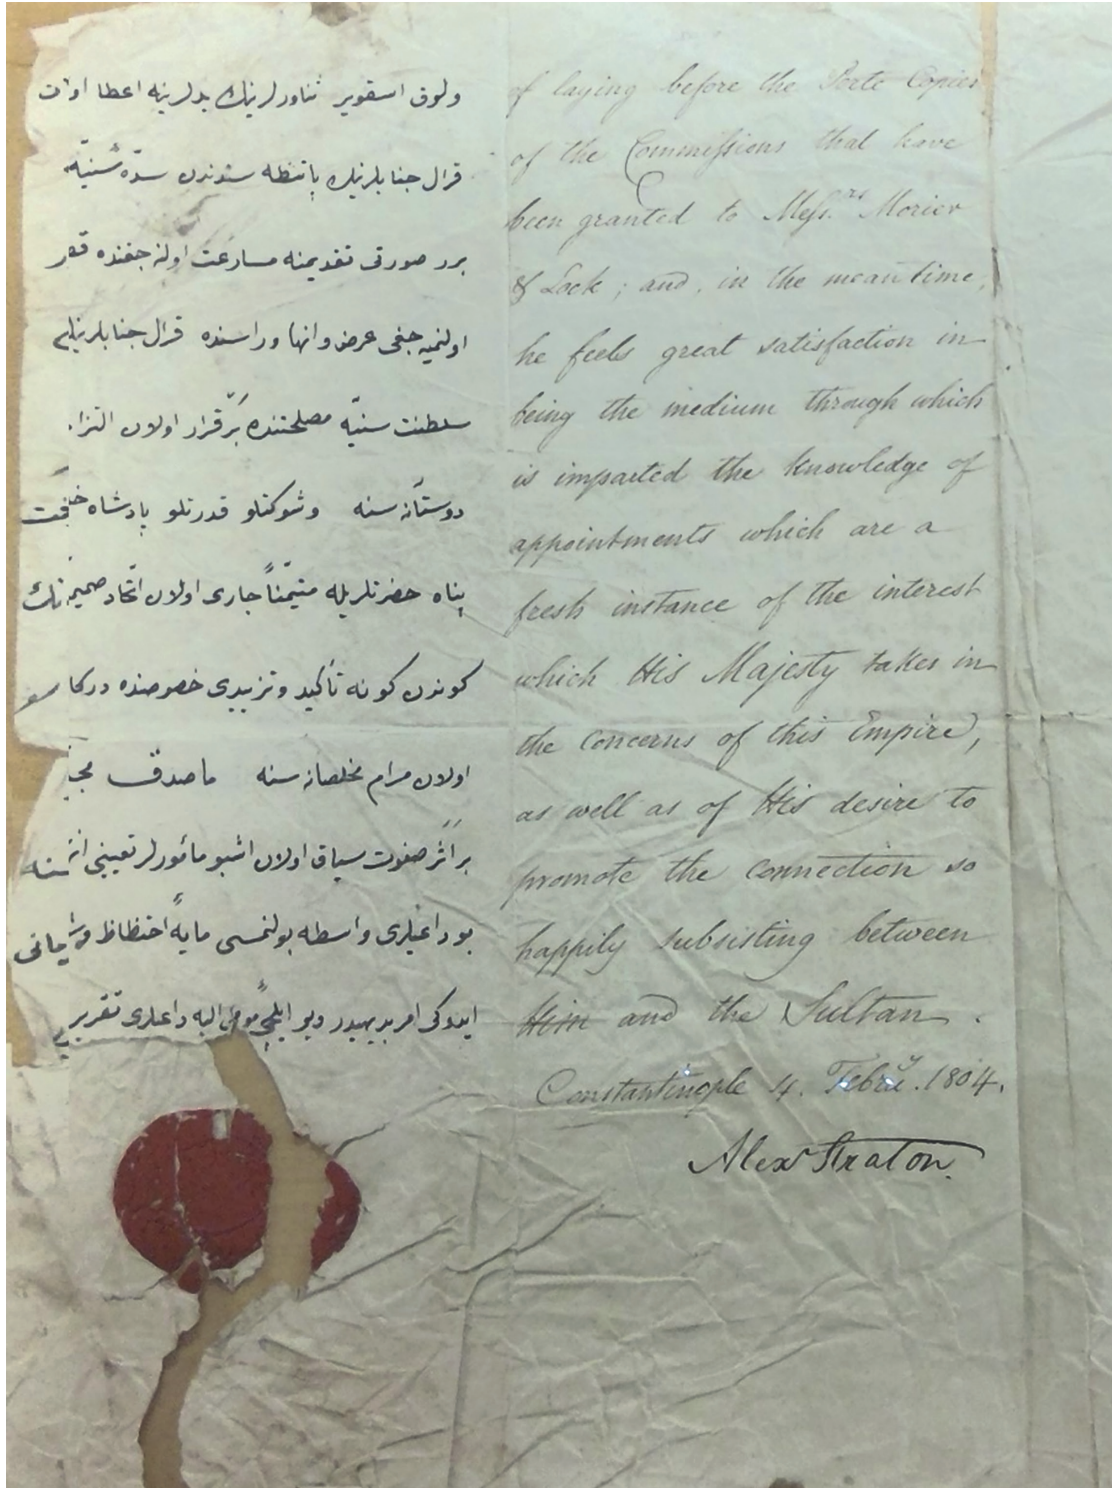 ولوق اسقویر ثناورلرینك یدلرینه اعطا اولنان
قرال جنابلرینك پاتنطه سندن سدّهٔ سنیّه
برر صورتی تقدیمنه مسارعت اوله جغنده قصر
اولنمیه جغی عرض وانها وراسنده قرال جنابلرینك
سلطنت سنیّه مصلحتنده برقرار اولان التزام
دوستانه سنه وشوکتلو قدرتلو پادشاه خلافت
پناه حضرتلریله متیمّناً جاری اولان اتّحاد صمیمه نك
کوندن کونه تأکید وتزییدی خصوصنده درکار
اولان مرام مخلصانه سنه ماصدق
بر اثر صفوت سیاق اولان اشبو مأمورلر تعیینی
بو داعیلری واسطه بولنمسی مایهٔ احتظاظ
ایدوکی امر بدیهیدر دیو ایلچئ مومی الیه داعیلری تقریر
of laying before the Porte Copies
of the Commissions that have
been granted to Messrs Morier
& Lock; and, in the mean time,
he feels great satisfaction in
being the medium through which
is imparted the knowledge of
appointments which are a
fresh instance of the interest
which His Majesty takes in
the concerns of this Empire,
as well as of His desire to
promote the connection so
happily subsisting between
Him and the Sultan.
Constantinople 4. Febry. 1804.
Alexr Straton.